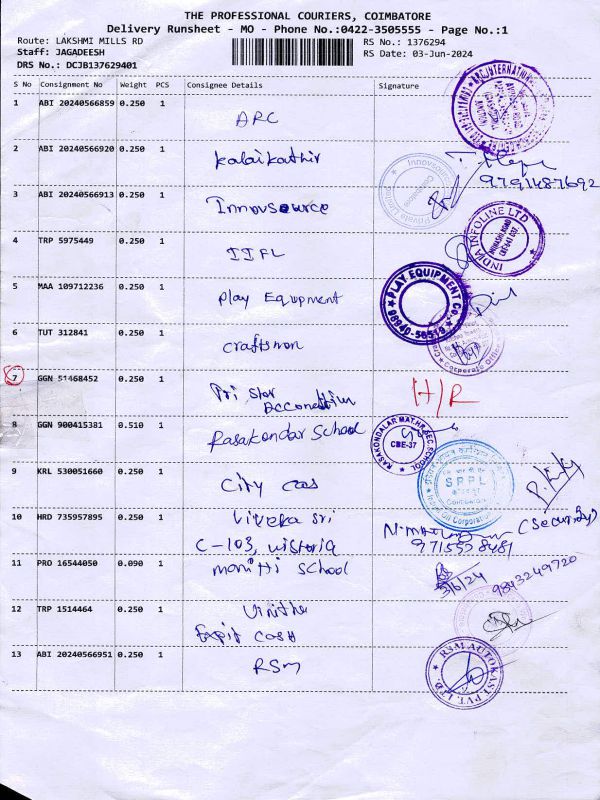 THE PROFESSIONAL COURIERS, COIMBATORE
Delivery Runsheet - MO - Phone No.:0422-3505555 - Page No.:1
Route: LAKSHMI MILLS RD
Staff: JAGADEESH
DRS No.: DCJB137629401
RS No.: 1376294
RS Date: 03-Jun-2024
S No Consignment No Weight PCS Consignee Details Signature
1 ABI 20240566859 0.250 1 ARC
2 ABI 20240566920 0.250 1 Kalaikathir
9791487692
3 ABI 20240566913 0.250 1 Innovsource
Innovsource
Private Limited
Coimbatore
4 TRP 5975449 0.250 1 IIFL
INDIA INFOLINE LTD
5 MAA 109712236 0.250 1 Play Equpment
PLAY EQUIPMENT CO.
6 TUT 312841 0.250 1 craftsman
Corporate Office
7 GGN 51468452 0.250 1 Pri Star
H/R
8 GGN 900415381 0.510 1 Rasakondar School
RASAKONDALAR MAT.HR.SEC.SCHOOL
CBE-37
9 KRL 530051660 0.250 1 City Gas
SPPL
Coimbatore
Indian Oil Corporation
10 HRD 735957895 0.250 1 Viveka Sri
C-103, Wistoria
(Security)
9715558481
11 PRO 16544050 0.090 1 monitti School
3/6/24
9843249720
12 TRP 1514464 0.250 1 Vinitha
Expit Cash
13 ABI 20240566951 0.250 1 RSM
RSM AUTOKAST PVT. LTD.